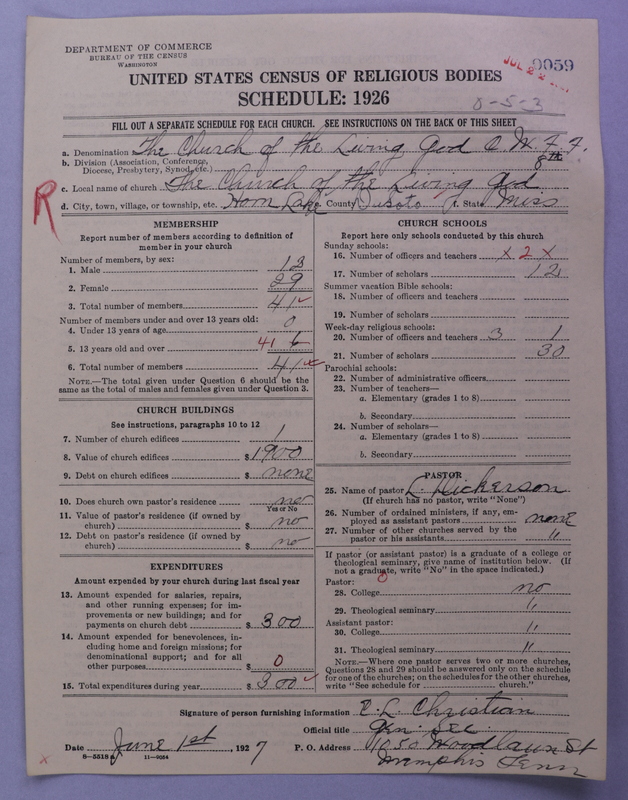 DEPARTMENT OF COMMERCE
BUREAU OF THE CENSUS
WASHINGTON
JUL 22
9059
UNITED STATES CENSUS OF RELIGIOUS BODIES
SCHEDULE: 1926
8-5-3
FILL OUT A SEPARATE SCHEDULE FOR EACH CHURCH. SEE INSTRUCTIONS ON THE BACK OF THIS SHEET
a. Denomination The Church of the Living God C. W. F. F.
b. Division (Association, Conference, Diocese, Presbytery, Synod, etc.) 8th
c. Local name of church The Church of the Living God
d. City, town, village, or township, etc. Horn Lake County Desoto State Miss
R
MEMBERSHIP
Report number of members according to definition of
member in your church
Number of members, by sex:
1. Male 12
2. Female 29
3. Total number of members 41
Number of members under and over 13 years old:
4. Under 13 years of age 0
5. 13 years old and over 41 6
6. Total number of members 41
NOTE.—The total given under Question 6 should be the
same as the total of males and females given under Question 3.
CHURCH BUILDINGS
See instructions, paragraphs 10 to 12
7. Number of church edifices 1
8. Value of church edifices $ 1900
9. Debt on church edifices $ none
10. Does church own pastor's residence no
Yes or No
11. Value of pastor's residence (if owned by
church) $ no
12. Debt on pastor's residence (if owned by
church) $ no
EXPENDITURES
Amount expended by your church during last fiscal year
13. Amount expended for salaries, repairs,
and other running expenses; for im-
provements or new buildings; and for
payments on church debt $ 300
14. Amount expended for benevolences, in-
cluding home and foreign missions; for
denominational support; and for all
other purposes $ 0
15. Total expenditures during year $ 300
CHURCH SCHOOLS
Report here only schools conducted by this church
Sunday schools:
16. Number of officers and teachers x 2 x
17. Number of scholars 12
Summer vacation Bible schools:
18. Number of officers and teachers
19. Number of scholars
Week-day religious schools:
20. Number of officers and teachers 3 1
21. Number of scholars 30
Parochial schools:
22. Number of administrative officers
23. Number of teachers—
a. Elementary (grades 1 to 8)
b. Secondary
24. Number of scholars—
a. Elementary (grades 1 to 8)
b. Secondary
PASTOR
25. Name of pastor L. Dickerson
(If church has no pastor, write "None")
26. Number of ordained ministers, if any, em-
ployed as assistant pastors none
27. Number of other churches served by the
pastor or his assistants "
If pastor (or assistant pastor) is a graduate of a college or
theological seminary, give name of institution below. (If
not a graduate, write "No" in the space indicated.)
Pastor:
28. College no
29. Theological seminary "
Assistant pastor:
30. College "
31. Theological seminary "
NOTE.—Where one pastor serves two or more churches,
Questions 28 and 29 should be answered only on the schedule
for one of the churches; on the schedules for the other churches,
write "See schedule for church."
Signature of person furnishing information E. L. Christian
Official title Gen Sec.
Date June 1st, 1927 P. O. Address 1030 Woodlawn St
Memphis Tenn
8—5518 a 11—9064